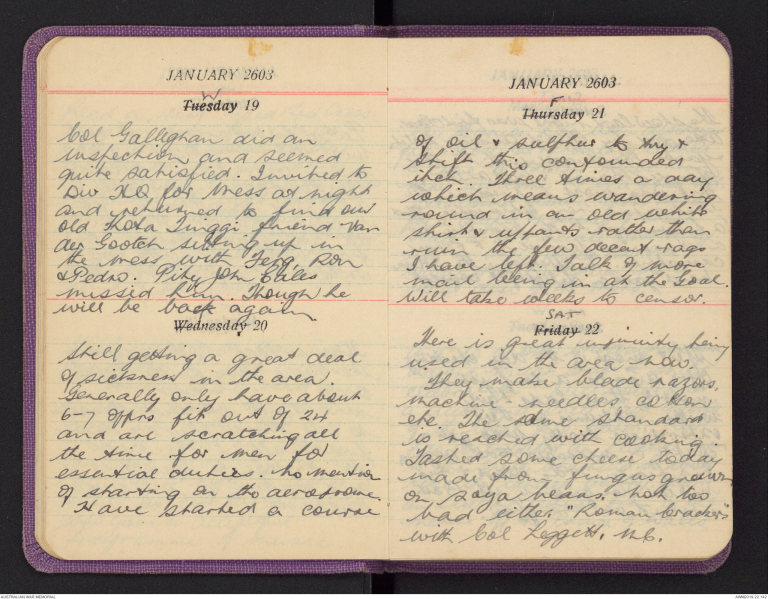 JANUARY 2603
W
Tuesday 19
Col Galleghan did an
inspection and seemed
quite satisfied. Invited to
Div H.Q for Mess at night
and returned to find our
old Kota Tinggi friend Van
der Gooteh sitting up in
the mess with Ferg, Ron
& Pedro. Pity John Eales
missed him. Though he
will be back again.
Wednesday 20
Still getting a great deal
of sickness in the area.
Generally only have about
6-7 offrs fit out of 24
and are scratching all
the time for men for
essential duties. No mention
of starting on the aerodrome.
Have started a course
JANUARY 2603
F
Thursday 21
of oil & sulphur to try &
shift this confounded
itch. Three times a day
which means wandering
round in an old white
shirt & u/pants rather than
ruin the few decent rags
I have left. Talk of more
mail being in at the Goal.
Will take weeks to censor.
SAT
Friday 22
There is great ingenuity being
used in the area now.
They make blade razors,
machine needles cotton
etc. The same standard
is reached with cooking.
Tashed some cheese today
made from fungus grown
on soya beans. Not too
bad either "Roman Crackers"
with Col Leggett, M.C.
AUSTRALIAN WAR MEMORIAL